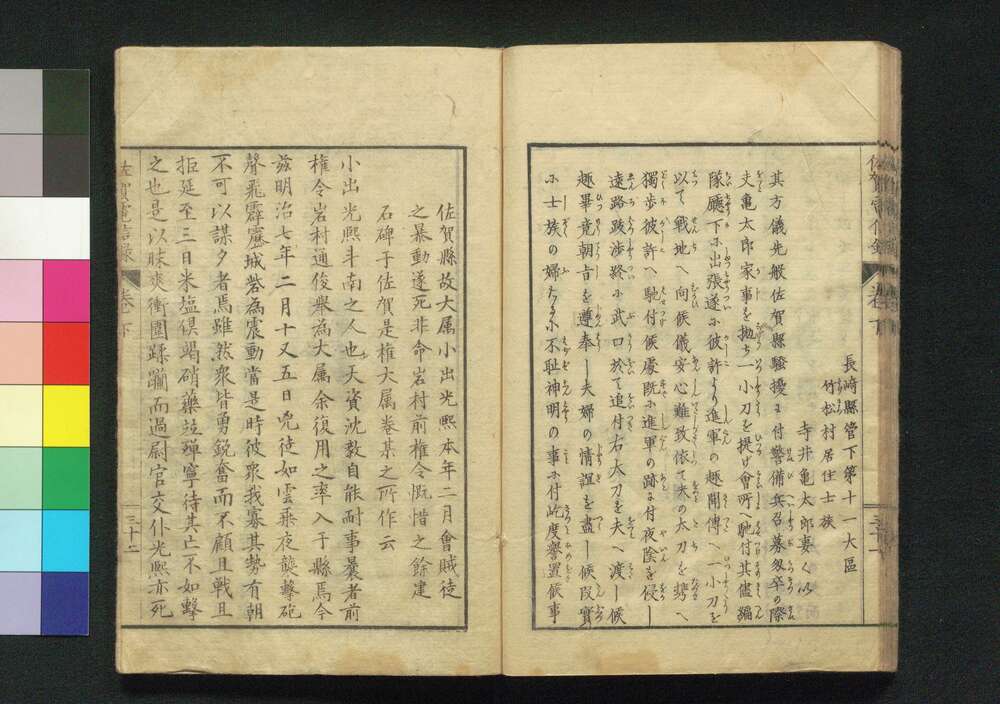 長崎縣管下第十一大區
竹松村居住士族
寺井亀太郎妻くめ
其方儀先般佐賀縣騒擾に付警備兵召募匆卒の際
夫亀太郎家事を抛ち一小刀を提け會所へ馳付其儘編
隊廳下に出張遂に彼許より進軍の趣聞傳へ一小刀を
以て戦地へ向候儀安心難致依て夫の太刀を携へ
獨歩彼許へ馳付候處既に進軍の跡に付夜陰を侵し
遠路跋渉終に武口於て追付右大刀を夫へ渡し候
趣畢竟朝旨を遵奉し夫婦の情誼を盡し候段實
に士族の婦たるに不耻神明の事に付此度譽置候事
佐賀縣故大属小出光煕本年二月會賊徒
之暴動遂死非命岩村前権令慨惜之餘建
石碑于佐賀是権大属巻某之所作云
小出光煕斗南之人也天資沈毅自能耐事曩者前
権令岩村通俊擧為大属余復用之率入于縣焉今
茲明治七年二月十又五日兇徒如雲乗夜襲撃砲
聲飛霹靂城砦為震動當是時彼衆我寡其勢有朝
不可以謀夕者焉雖然衆皆勇鋭奮而不顧且戦且
拒延至三日米塩倶竭硝薬竝殫寧待其亡不如撃
之也是以昧爽衝圍蹂躙而過尉官交仆光煕亦死
佐賀電信録 巻下 三十二